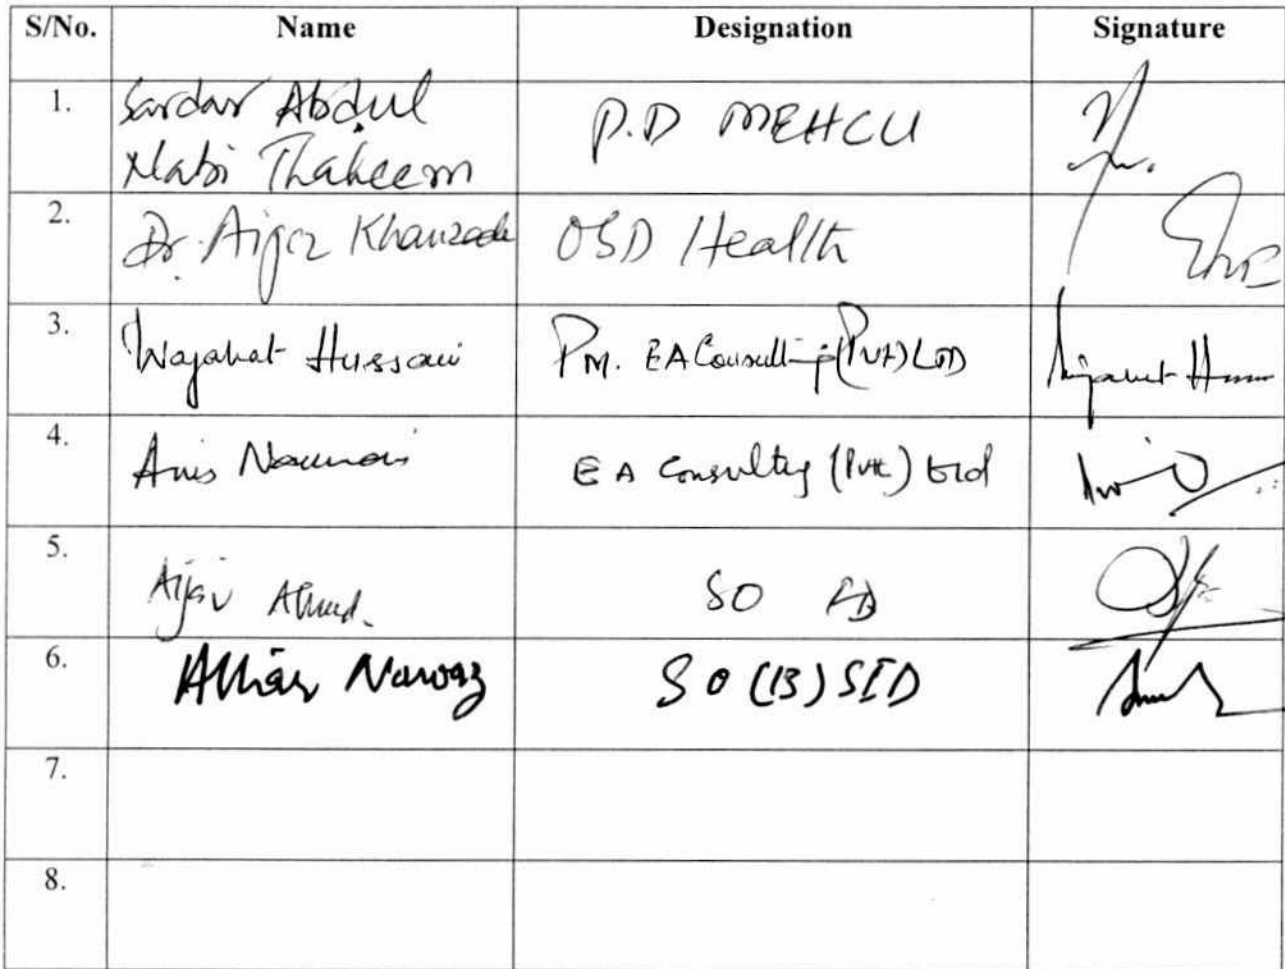 S/No. Name Designation Signature
1. Sardar Abdul
Nabi Thaheem P.D MEHCU
2. Dr. Aijaz Khanzada OSD Health
3. Wajahat Hussain PM. EA Consulting (Pvt) LTD
4. Anis EA Consulting (Pvt) Ltd
5. Aijaz Ahmed. SO
6. Athar Nawaz SO (B) SID
7.
8.